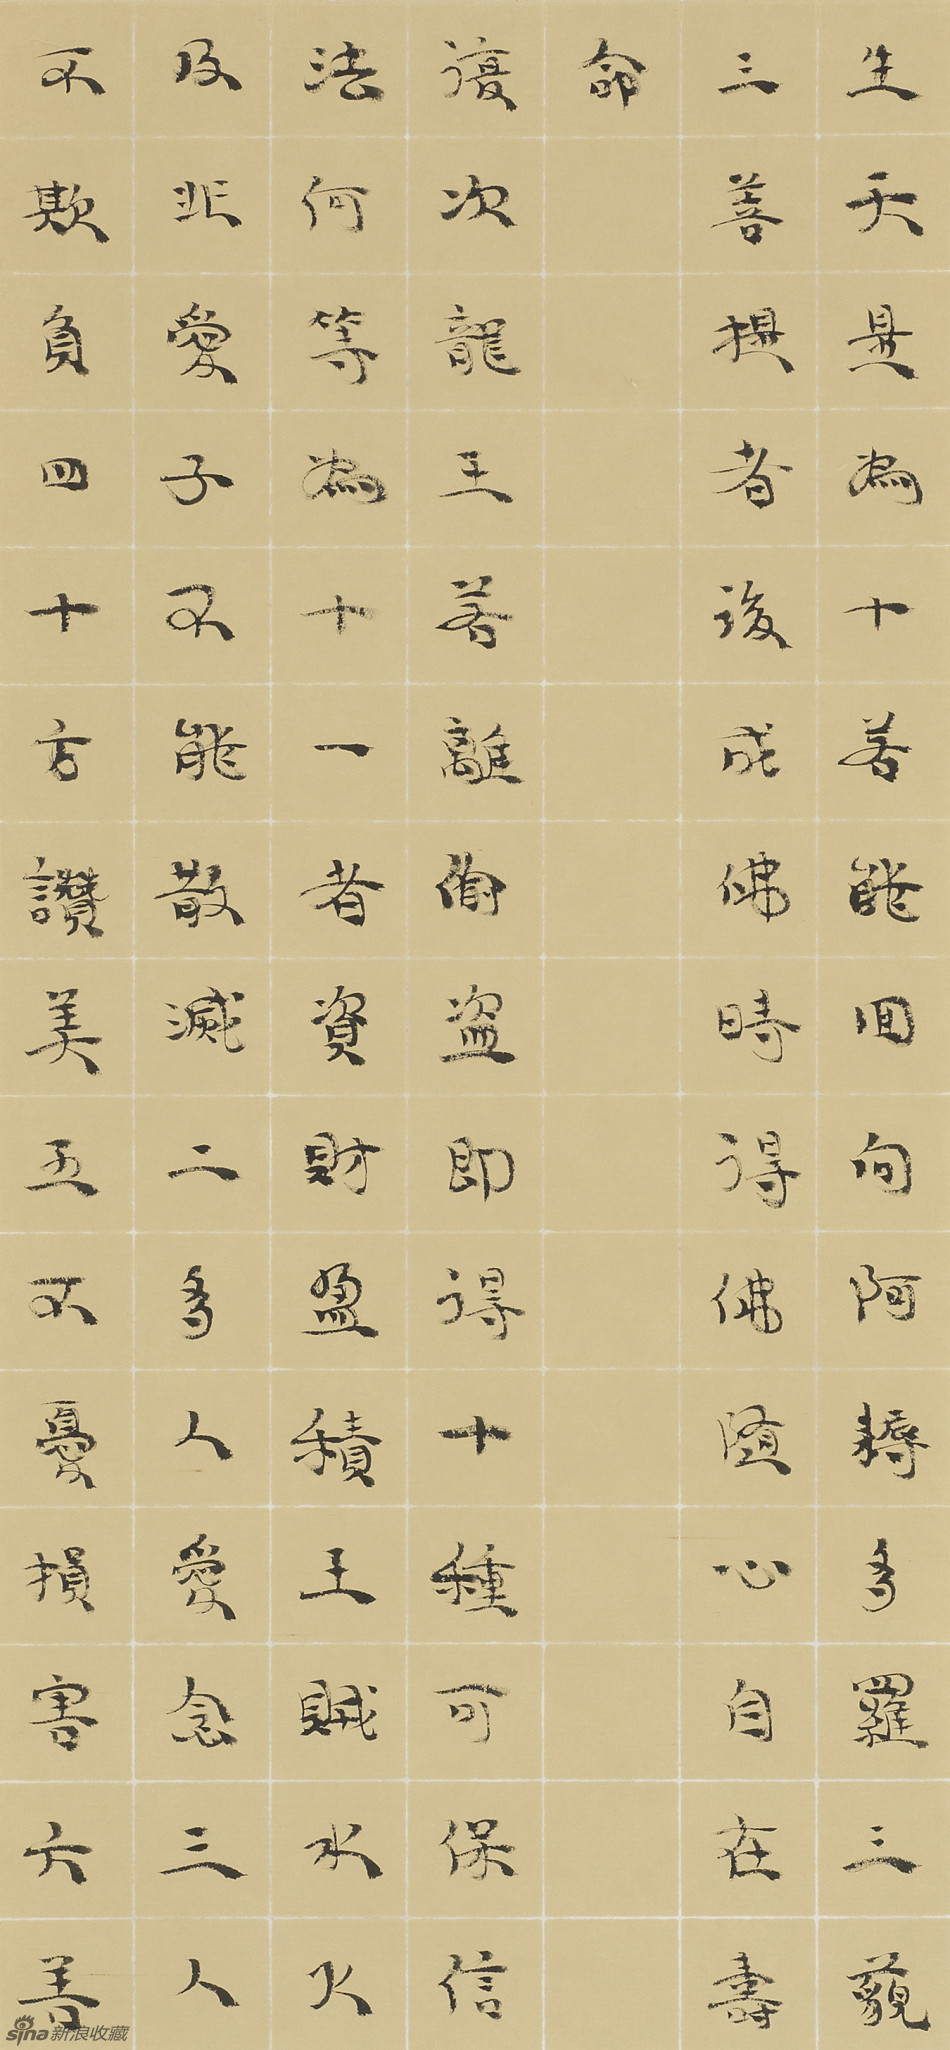 生天是為十若能回向阿耨多羅三藐
三菩提者後成佛時得佛隨心自在壽
命
復次龍王若離偷盜即得十種可保信
法何等為十一者資財盈積王賊水火
及非愛子不能散滅二多人愛念三人
不欺負四十方讚美五不憂損害六善
sina新浪收藏